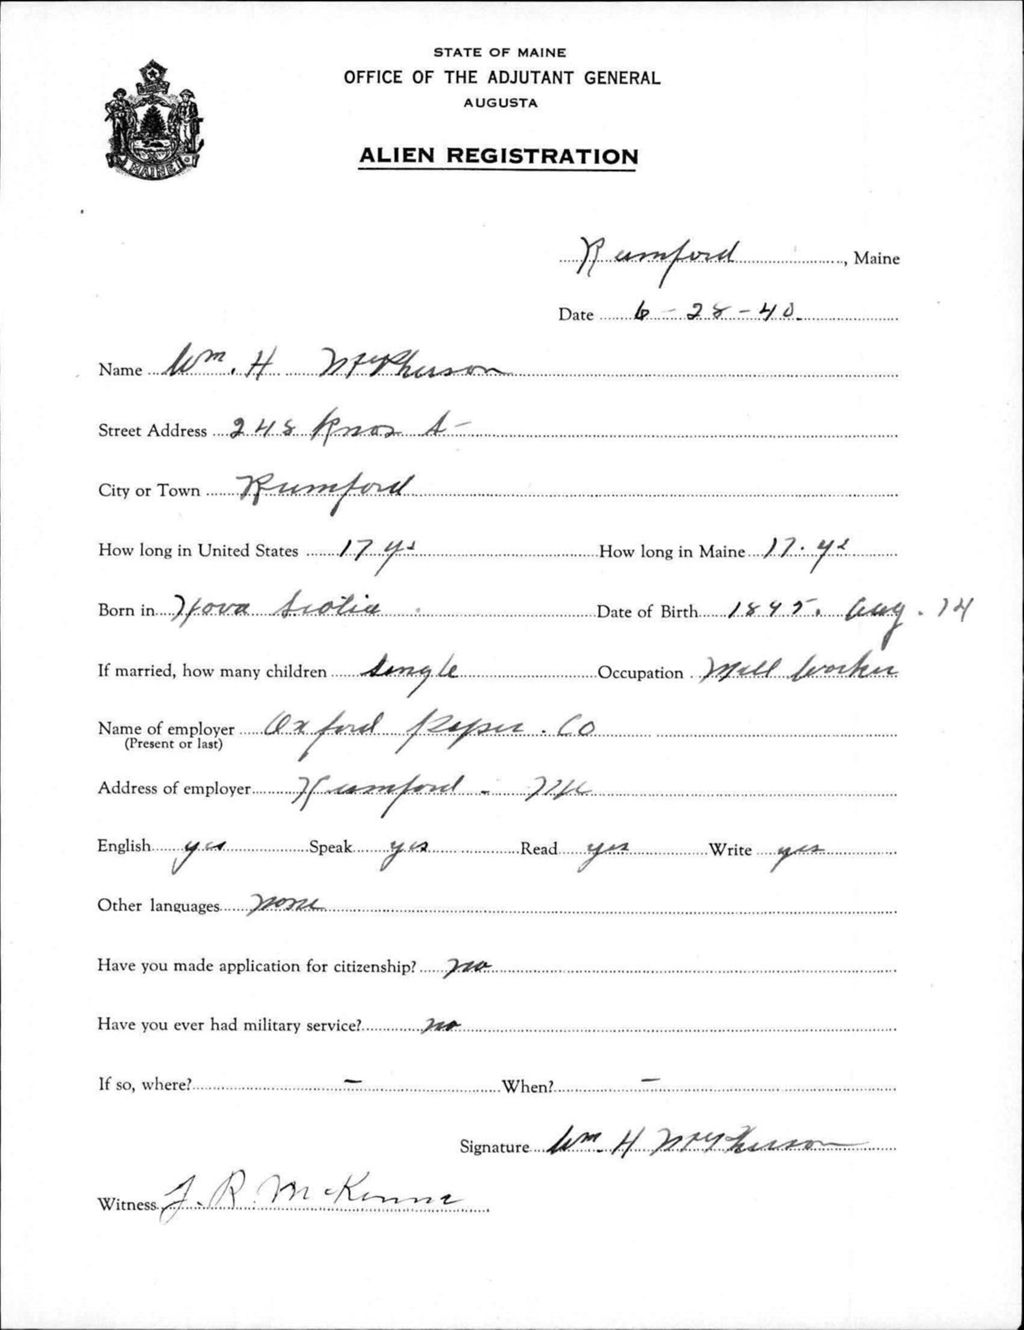 STATE OF MAINE
OFFICE OF THE ADJUTANT GENERAL
AUGUSTA
ALIEN REGISTRATION
MAINE
Rumford, Maine
Date 6-28-40.
Name Wm. H McPherson
Street Address 248 Knox St
City or Town Rumford
How long in United States 17 ys How long in Maine 17. ys
Born in Nova Scotia. Date of Birth 1895. Aug. 14
If married, how many children Single Occupation Mill Worker
Name of employer Oxford Paper. Co
(Present or last)
Address of employer Rumford - Me
English yes Speak yes Read yes Write yes
Other languages none
Have you made application for citizenship? no
Have you ever had military service? no
If so, where? - When? -
Signature Wm. H McPherson
Witness J. R. McKenna